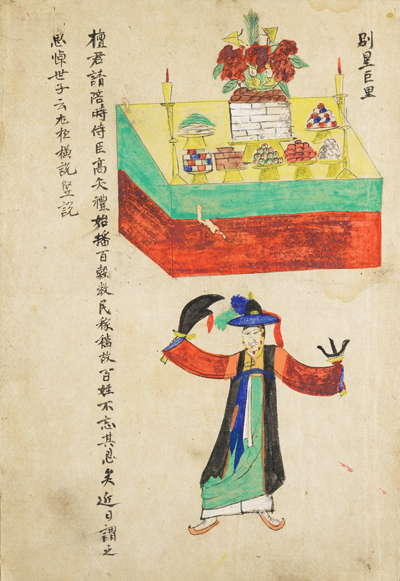 別星巨里
檀君請陪時侍臣高矢禮始播百穀敎民稼穡故百姓不忘其恩矣近日謂之
思悼世子云尤極橫說竪說